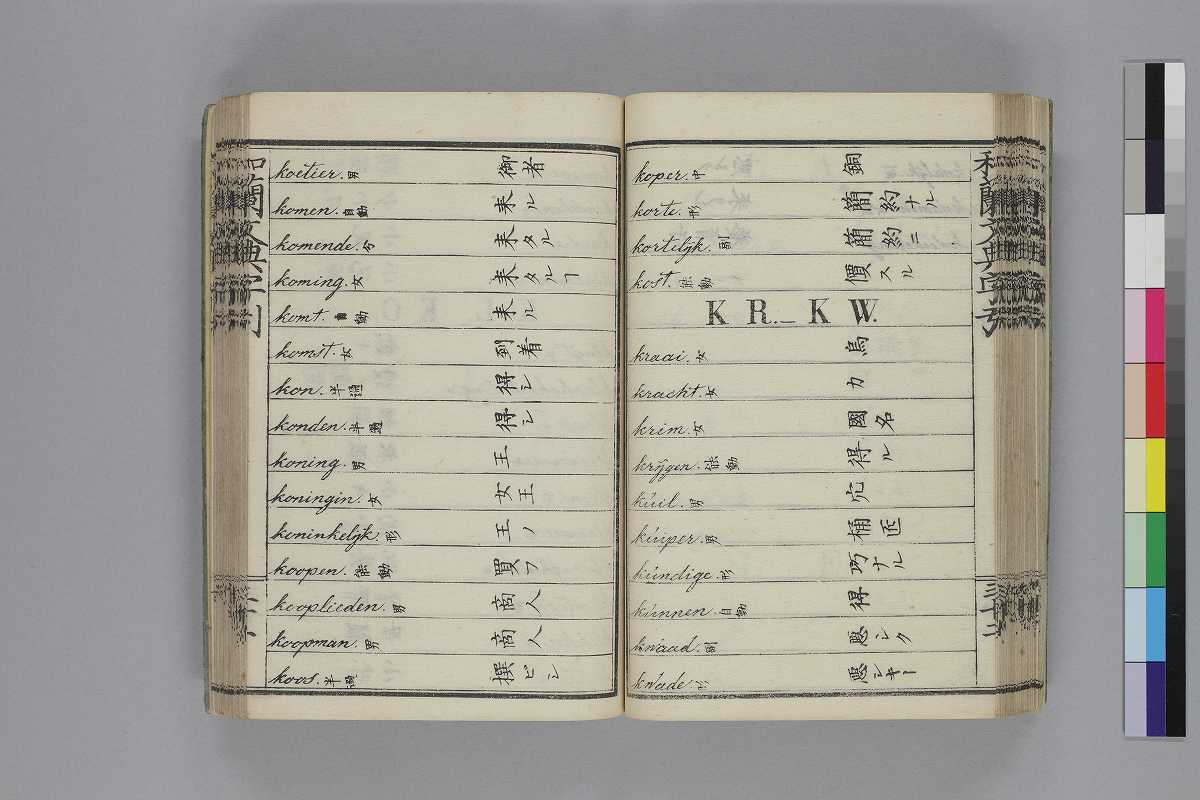 koetier. 男 御者
komen. 自動 来ル
komende. 分 来タル
koming. 女 来タルヿ
komt. 自動 来ル
komst. 女 到着
kon. 半過 得シ
konden. 半過 得シ
koning. 男 王
koningin. 女 女王
koninkelijk. 形 王ノ
koopen. 能動 買フ
kooplieden. 男 商人
koopman. 男 商人
koos. 半過 撰ビシ
koper. 中 銅
korte. 形 簡約ナル
kortelijk. 副 簡約ニ
kost. 能動 價スル
KR.–KW.
kraai. 女 烏
kracht. 女 力
krim. 女 國名
krijgen. 能動 得ル
kúil. 男 穴
kúiper. 男 桶匠
kúndige. 形 巧ナル
kúnnen. 自動 得
kwaad. 副 悪シク
kwade. 形 悪シキ